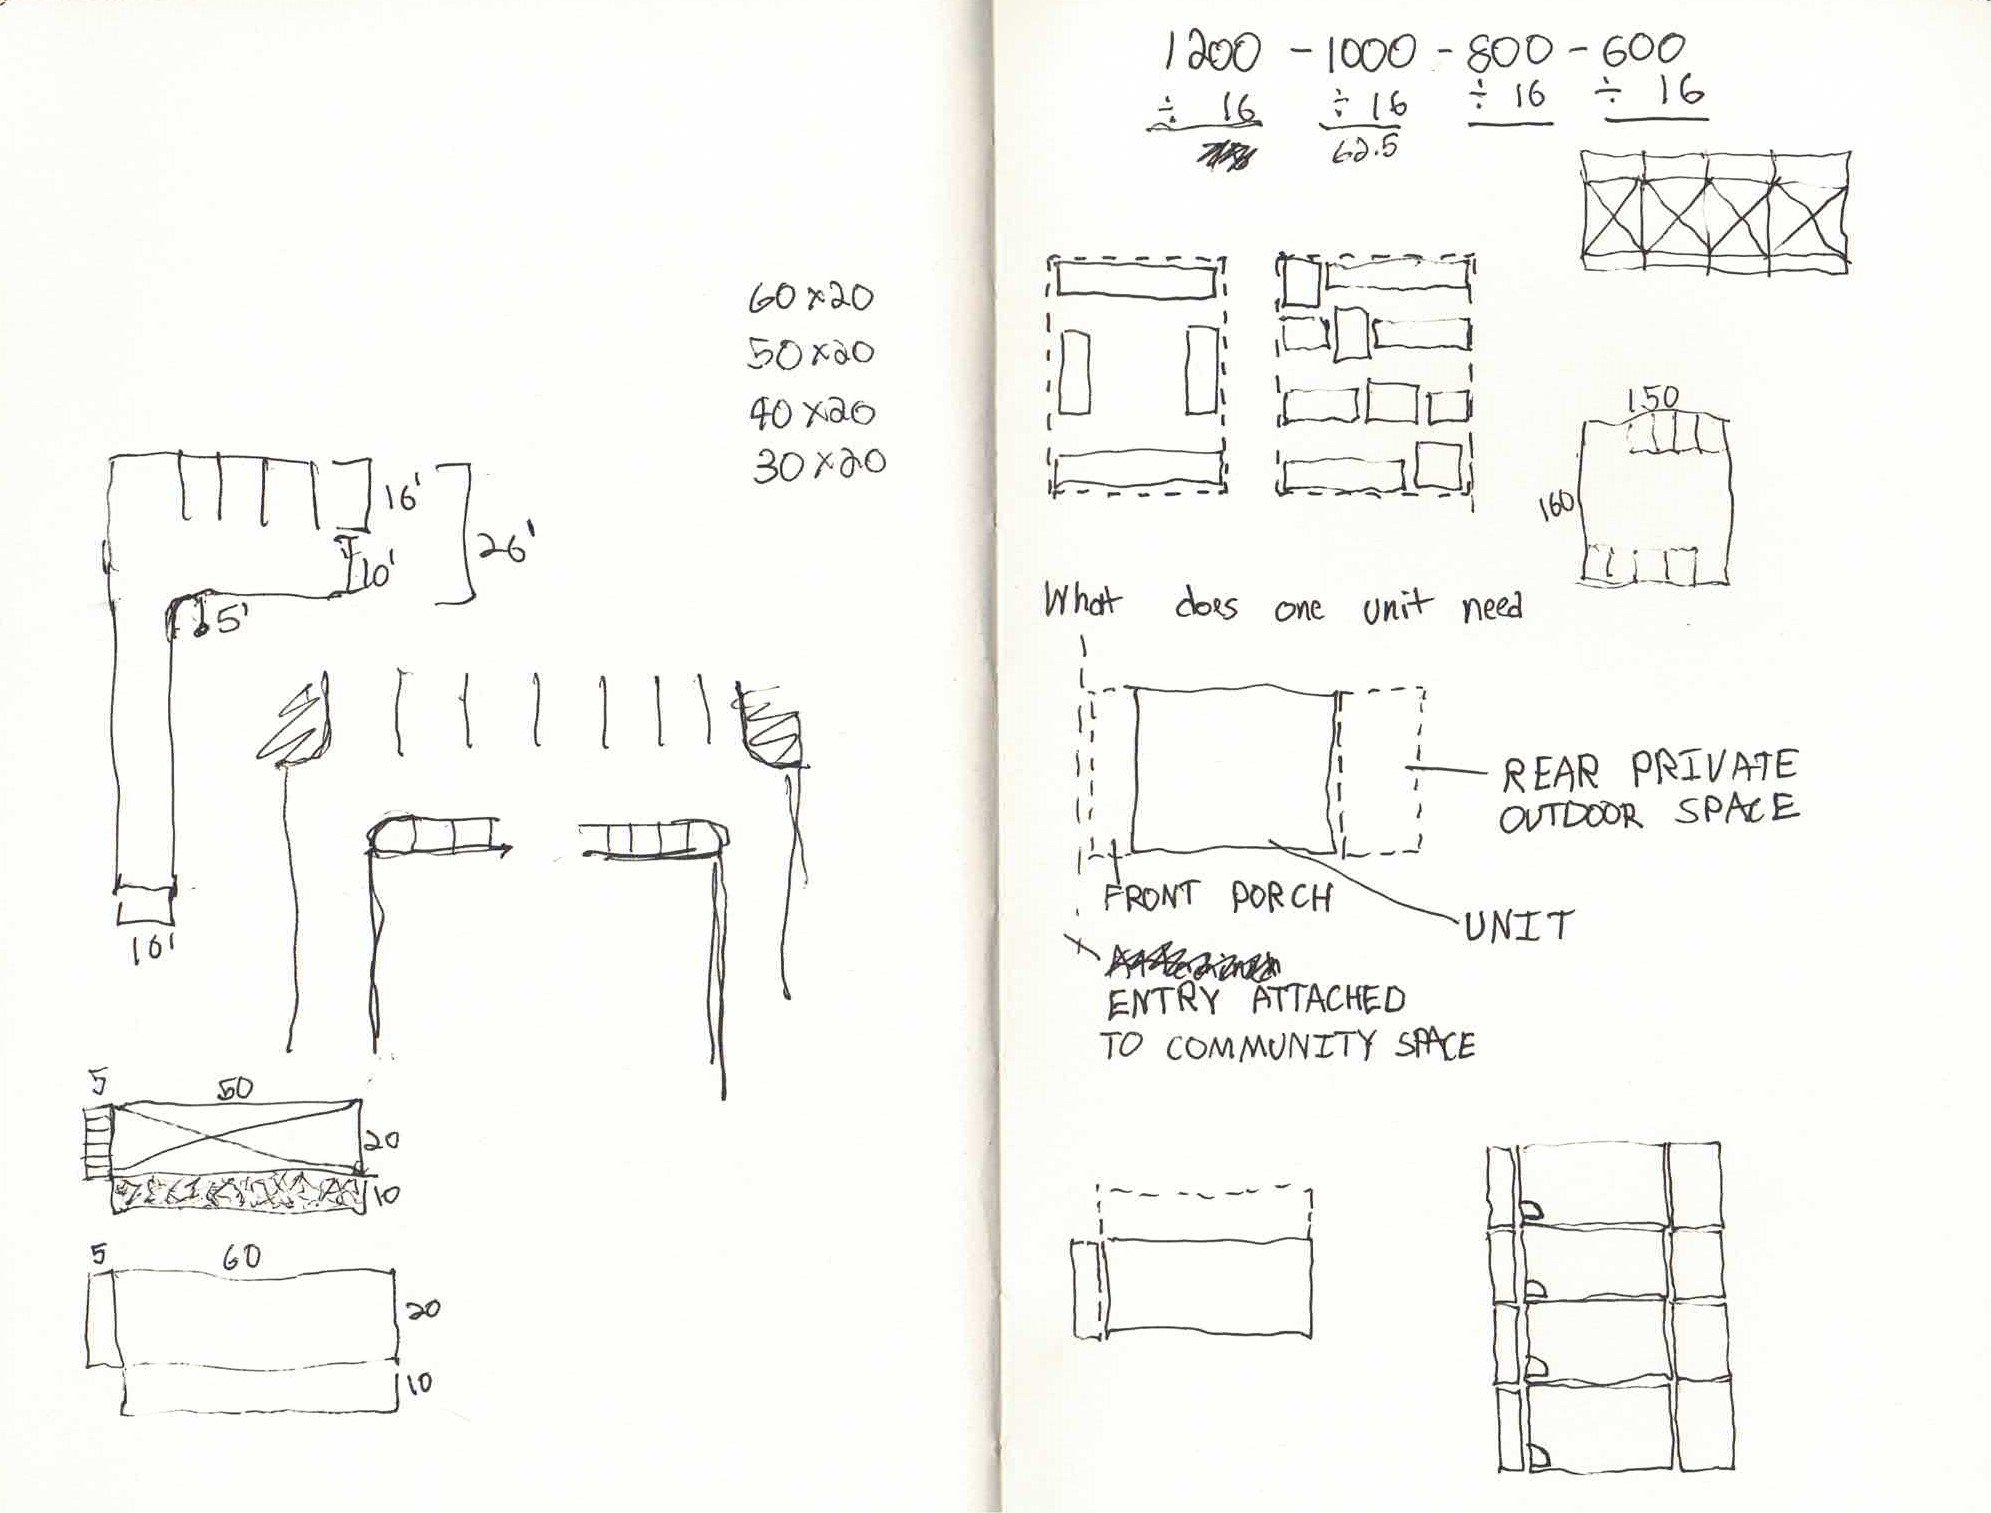 60x20
50x20
40x20
30x20
16'
26'
10'
5'
10'
5
50
20
10
5
60
20
10
1200 - 1000 - 800 - 600
÷ 16 ÷ 16 ÷ 16 ÷ 16
62.5
150
160
What does one unit need
REAR PRIVATE
OUTDOOR SPACE
FRONT PORCH
UNIT
ENTRY ATTACHED
TO COMMUNITY SPACE